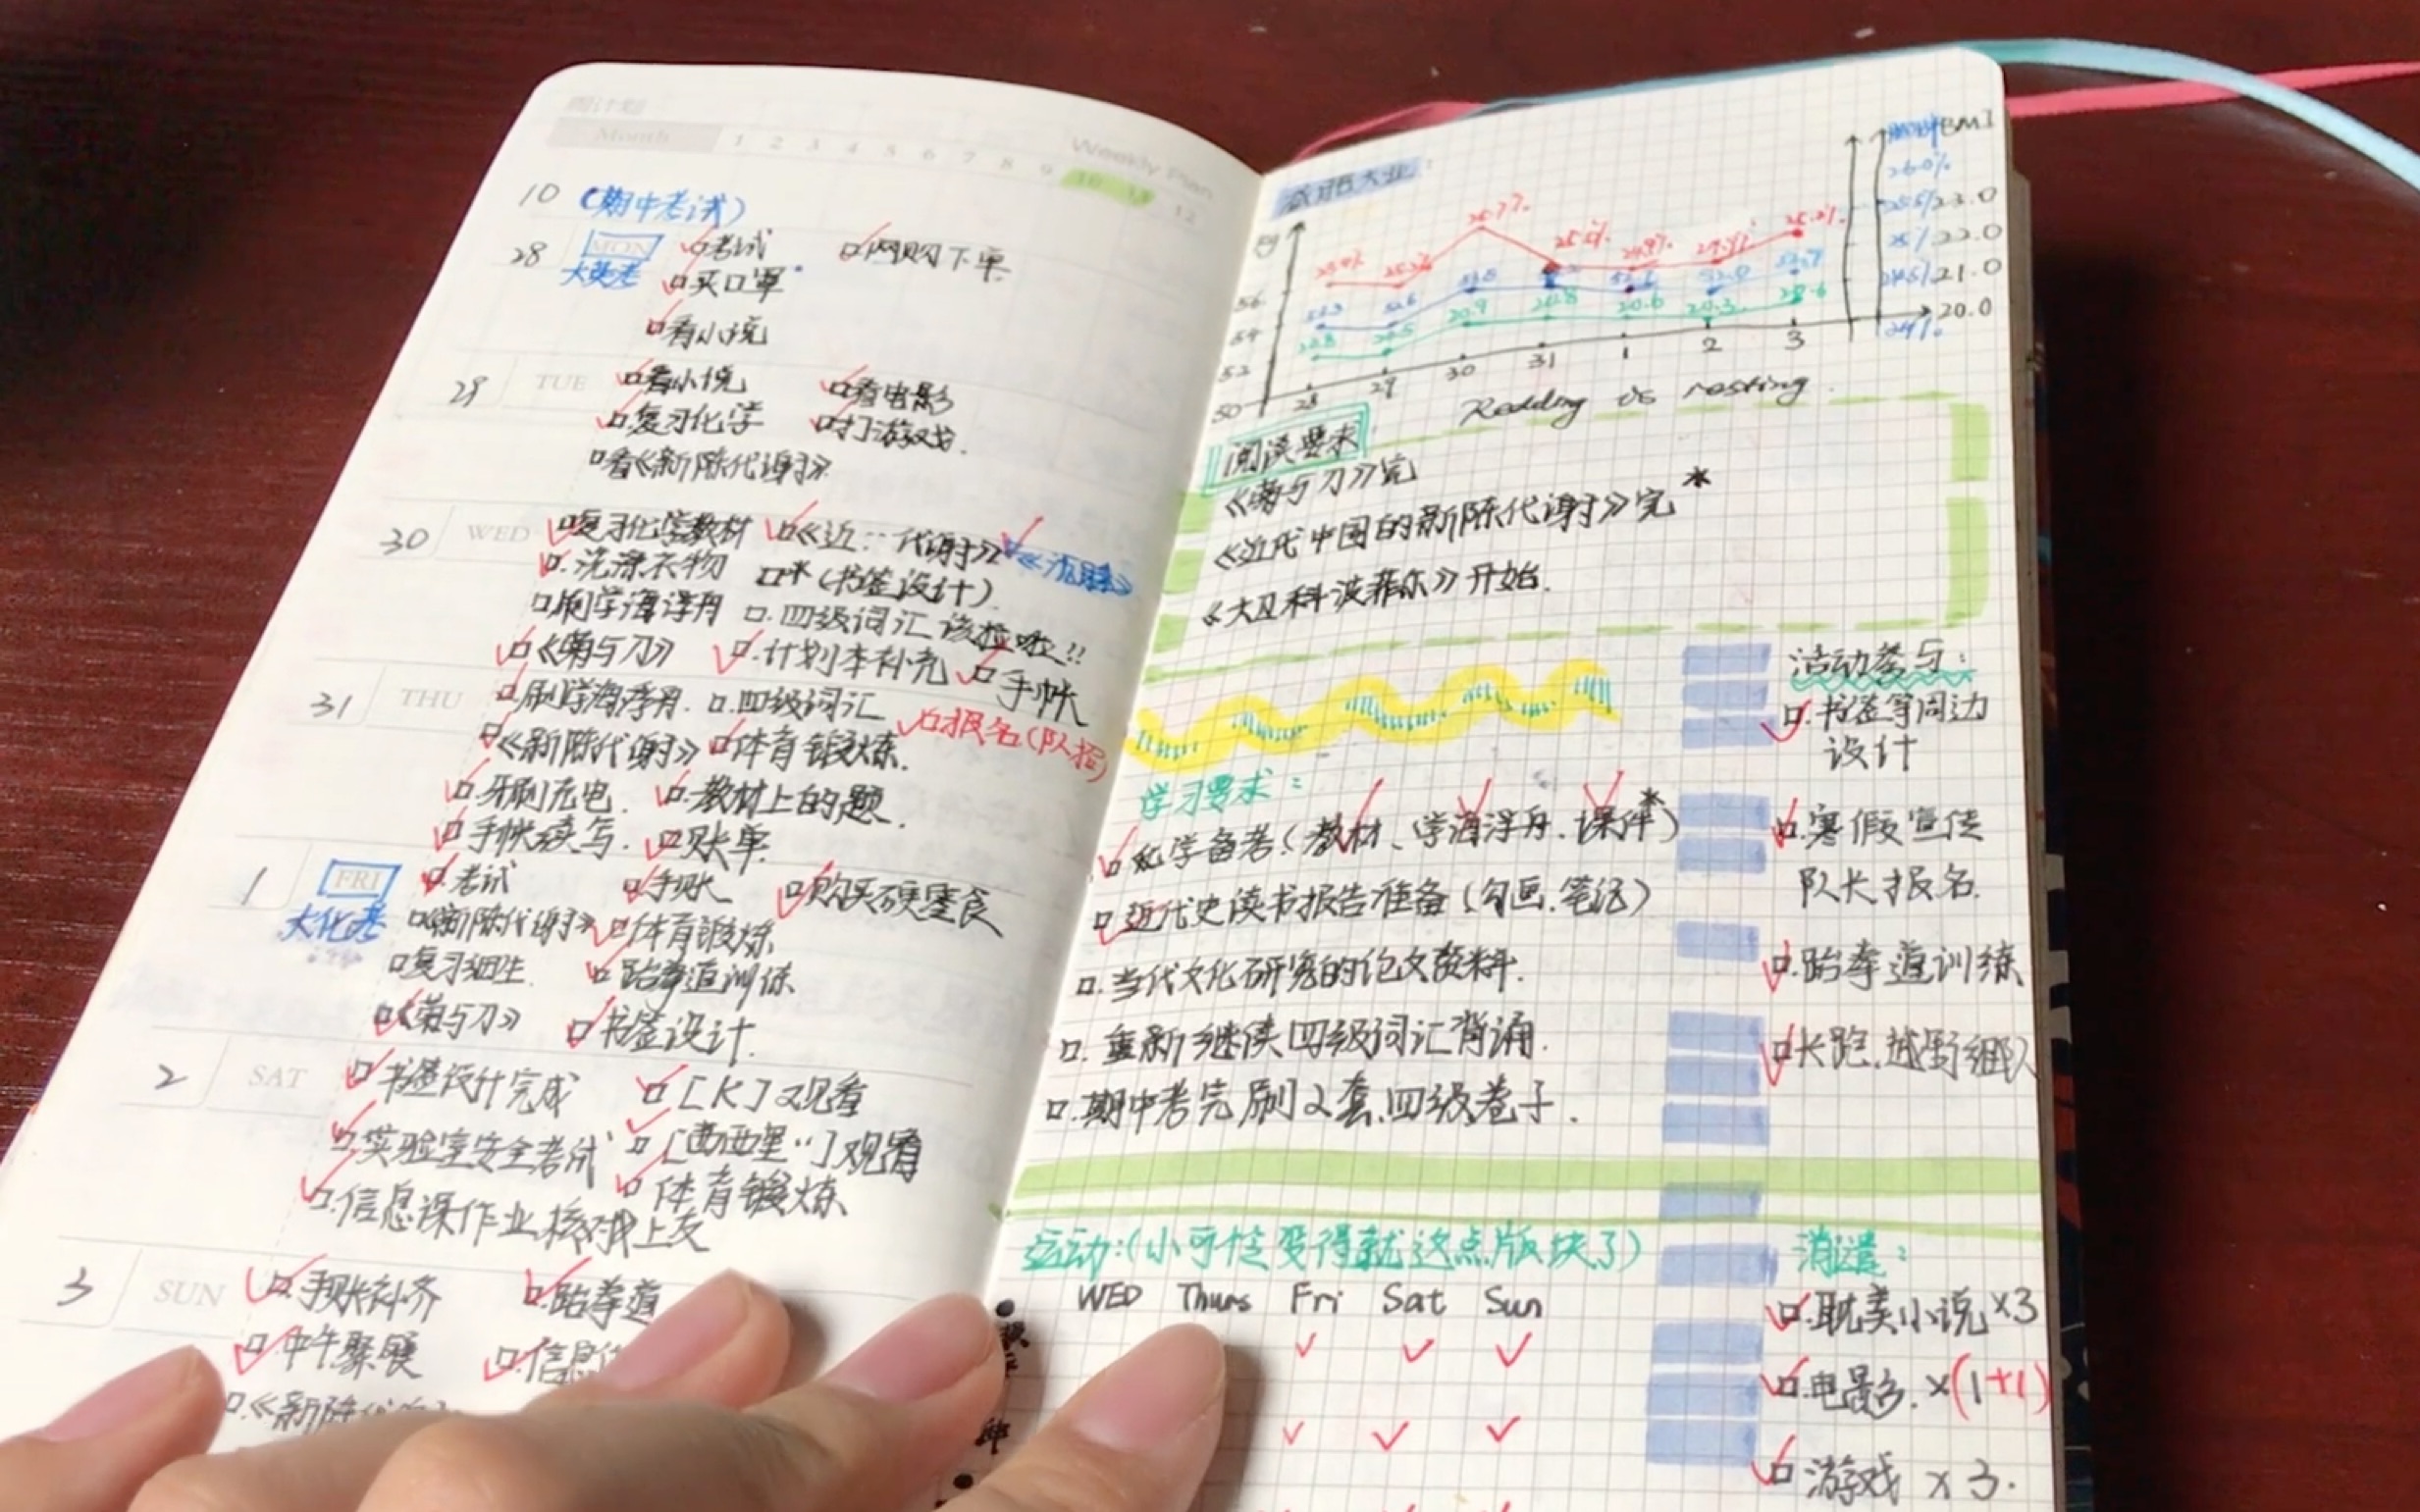 周计划
Month 1 2 3 4 5 6 7 8 9 10 11 12
Weekly Plan
10 (期中考试)
28 MON □考试 □网购下单
大英考 □买口罩
□看小说
29 TUE □看小说 □看电影
□复习化学 □打游戏.
□看《新陈代谢》
30 WED □复习化学教材 □《近…代谢》
□.洗漂衣物 □*(书签设计)
□刷学海浮舟 □.四级词汇该捡啦!!
□《菊与刀》 □.计划本补充 □手帐
31 THU □刷学海浮舟. □.四级词汇 □报名(队招)
□《新陈代谢》 □体育锻炼.
□.牙刷充电. □.教材上的题.
□手帐续写. □账单.
1 FRI □考试 □手账 □购买硬零食
大化考 □《新陈代谢》 □体育锻炼
□复习细生. □跆拳道训练
□《菊与刀》 □书签设计.
2 SAT □书签设计完成 □[K]观看
□.实验室安全考试 □[西西里…]观看
□.信息课作业核对上交 □体育锻炼
3 SUN □.手账补齐 □.跆拳道
□.中午聚餐 □.信息
□.《新陈代谢》
减肥大业:
kg
56
54
52
50
28 29 30 31 1 2 3
BMI
26.0%
25.5% 23.0
25% 22.0
24.5% 21.0
24% 20.0
25.7%
25.2%
20.9 20.8 20.6 20.3 20.6
Reading is resting.
阅读要求
《菊与刀》完
《近代中国的新陈代谢》完*
《大卫科波菲尔》开始.
学习要求:
□化学备考(教材、学海浮舟.课件*)
□近代史读书报告准备(勾画.笔记)
□.当代文化研究的论文教料.
□.重新继续四级词汇背诵.
□.期中考完刷2套四级卷子.
活动参与:
□.书签等周边
设计
□.寒假宣传
队长报名.
□.跆拳道训练
□长跑.越野组队
运动:(小可怜变得就这点版块了)
WED Thurs Fri Sat Sun
消遣:
□.耽美小说×3
□.电影.×(1+1)
□游戏×3.